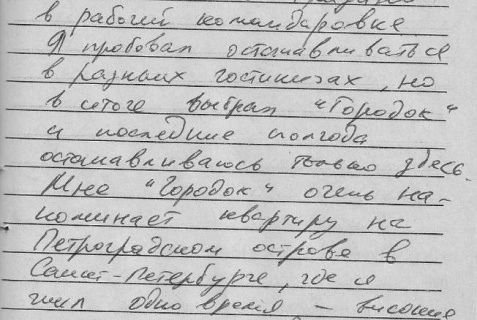 в рабочей командировке
Я пробовал останавливаться
в разных гостиницах, но
в итоге выбрал "Городок"
и последние полгода
останавливаюсь только здесь.
Мне "Городок" очень на-
поминает квартиру на
Петроградском острове в
Санкт-Петербурге, где я
жил одно время – высокие